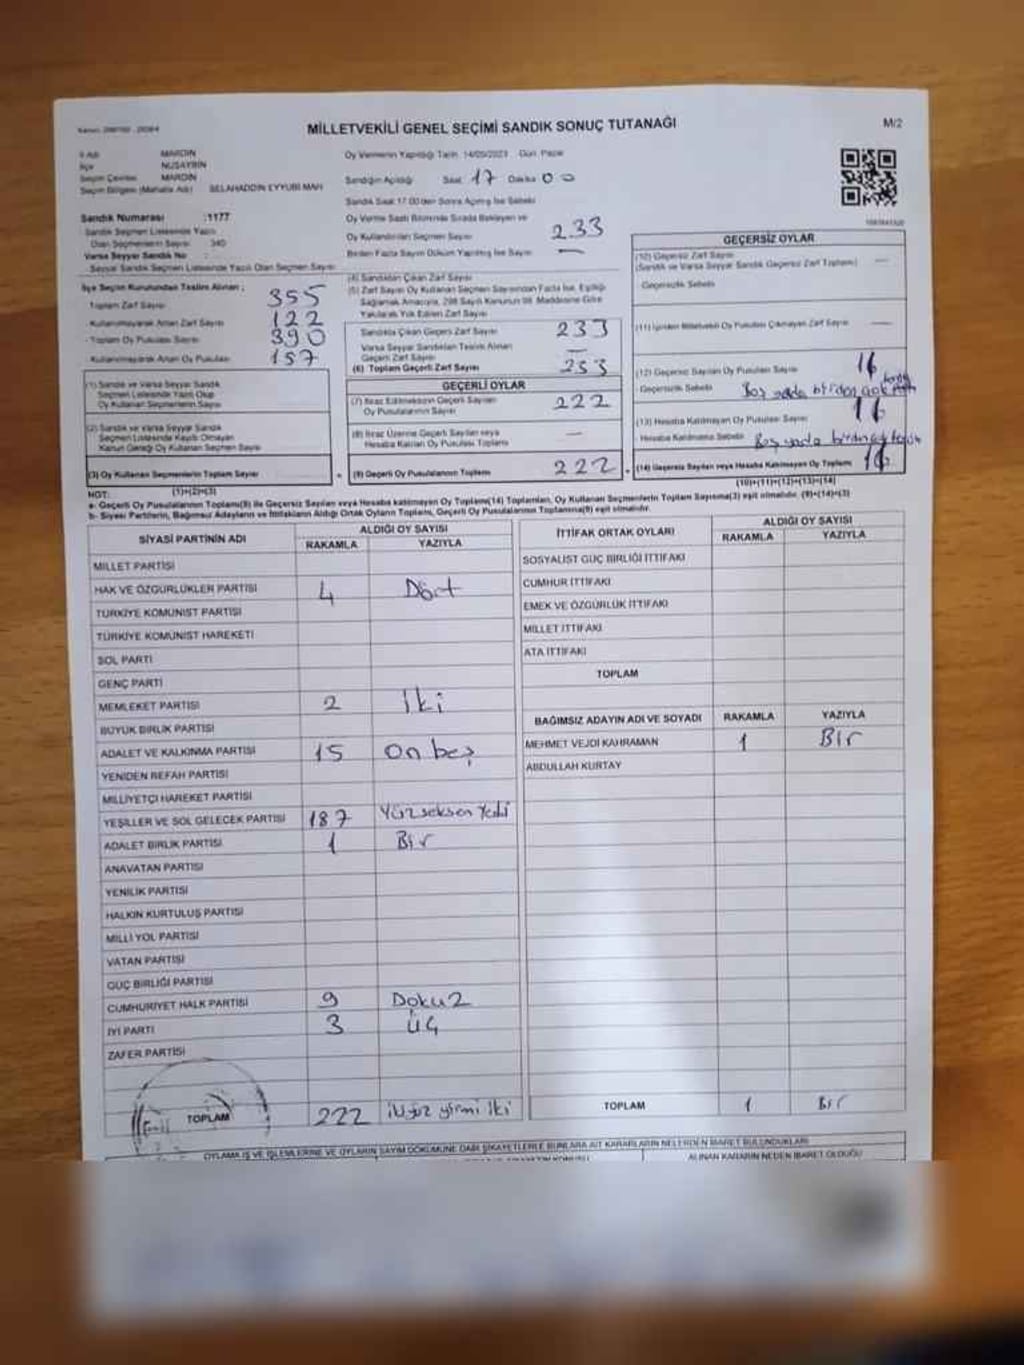 MİLLETVEKİLİ GENEL SEÇİMİ SANDIK SONUÇ TUTANAĞI
M/2
İl Adı MARDİN
İlçe NUSAYBİN
Seçim Çevresi MARDİN
Seçim Bölgesi (Mahalle Adı) SELAHADDİN EYYUBİ MAH
Sandık Numarası :1177
Sandık Seçmen Listesinde Yazılı
Olan Seçmenlerin Sayısı 340
Varsa Seyyar Sandık No
Seyyar Sandık Seçmen Listesinde Yazılı Olan Seçmen Sayısı
İlçe Seçim Kurulundan Teslim Alınan ;
Toplam Zarf Sayısı 355
Kullanılmayarak Artan Zarf Sayısı 122
Toplam Oy Pusulası Sayısı 390
Kullanılmayarak Artan Oy Pusulası 157
(1) Sandık ve Varsa Seyyar Sandık
Seçmen Listesinde Yazılı Olup
Oy Kullanan Seçmenlerin Sayısı
(2) Sandık ve Varsa Seyyar Sandık
Seçmen Listesinde Kayıtlı Olmayan
Kanun Gereği Oy Kullanan Seçmen Sayısı
(3) Oy Kullanan Seçmenlerin Toplam Sayısı
(1)+(2)=(3)
Oy Vermenin Yapıldığı Tarih 14/05/2023 Gün: Pazar
Sandığın Açıldığı Saat 17 Dakika 00
Sandık Saat 17:00'den Sonra Açılmış İse Sebebi
Oy Verme Saati Bitiminde Sırada Bekleyen ve
Oy Kullandırılan Seçmen Sayısı 233
Birden Fazla Sayım Döküm Yapılmış İse Sayısı —
(4) Sandıktan Çıkan Zarf Sayısı
(5) Zarf Sayısı Oy Kullanan Seçmen Sayısından Fazla İse, Eşitliği
Sağlamak Amacıyla, 298 Sayılı Kanunun 98. Maddesine Göre
Yakılarak Yok Edilen Zarf Sayısı
Sandıkta Çıkan Geçerli Zarf Sayısı 233
Varsa Seyyar Sandıktan Teslim Alınan
Geçerli Zarf Sayısı —
(6) Toplam Geçerli Zarf Sayısı 233
GEÇERLİ OYLAR
(7) İtiraz Edilmeksizin Geçerli Sayılan
Oy Pusulalarının Sayısı 222
(8) İtiraz Üzerine Geçerli Sayılan veya
Hesaba Katılan Oy Pusulası Toplamı —
(9) Geçerli Oy Pusulalarının Toplamı 222
GEÇERSİZ OYLAR
(10) Geçersiz Zarf Sayısı
(Sandık ve Varsa Seyyar Sandık Geçersiz Zarf Toplamı) —
Geçersizlik Sebebi
(11) İçinden Milletvekili Oy Pusulası Çıkmayan Zarf Sayısı —
(12) Geçersiz Sayılan Oy Pusulası Sayısı 16
Geçersizlik Sebebi Boş yada birden çok
(13) Hesaba Katılmayan Oy Pusulası Sayısı 16
Hesaba Katılmama Sebebi Boş yada birden çok
(14) Geçersiz Sayılan veya Hesaba Katılmayan Oy Toplamı 16
(10)+(11)+(12)+(13)=(14)
NOT:
a- Geçerli Oy Pusulalarının Toplamı(9) ile Geçersiz Sayılan veya Hesaba katılmayan Oy Toplamı(14) Toplamları, Oy Kullanan Seçmenlerin Toplam Sayısına(3) eşit olmalıdır. (9)+(14)=(3)
b- Siyasi Partilerin, Bağımsız Adayların ve İttifakların Aldığı Ortak Oyların Toplamı, Geçerli Oy Pusulalarının Toplamına(9) eşit olmalıdır.
SİYASİ PARTİNİN ADI
ALDIĞI OY SAYISI
RAKAMLA YAZIYLA
MİLLET PARTİSİ
HAK VE ÖZGÜRLÜKLER PARTİSİ 4 Dört
TÜRKİYE KOMÜNİST PARTİSİ
TÜRKİYE KOMÜNİST HAREKETİ
SOL PARTİ
GENÇ PARTİ
MEMLEKET PARTİSİ 2 İki
BÜYÜK BİRLİK PARTİSİ
ADALET VE KALKINMA PARTİSİ 15 On beş
YENİDEN REFAH PARTİSİ
MİLLİYETÇİ HAREKET PARTİSİ
YEŞİLLER VE SOL GELECEK PARTİSİ 187 Yüzseksen Yedi
ADALET BİRLİK PARTİSİ 1 Bir
ANAVATAN PARTİSİ
YENİLİK PARTİSİ
HALKIN KURTULUŞ PARTİSİ
MİLLİ YOL PARTİSİ
VATAN PARTİSİ
GÜÇ BİRLİĞİ PARTİSİ
CUMHURİYET HALK PARTİSİ 9 Dokuz
İYİ PARTİ 3 Üç
ZAFER PARTİSİ
TOPLAM 222 İkiyüz yirmi iki
İTTİFAK ORTAK OYLARI
ALDIĞI OY SAYISI
RAKAMLA YAZIYLA
SOSYALİST GÜÇ BİRLİĞİ İTTİFAKI
CUMHUR İTTİFAKI
EMEK VE ÖZGÜRLÜK İTTİFAKI
MİLLET İTTİFAKI
ATA İTTİFAKI
TOPLAM
BAĞIMSIZ ADAYIN ADI VE SOYADI RAKAMLA YAZIYLA
MEHMET VEJDİ KAHRAMAN 1 Bir
ABDULLAH KURTAY
TOPLAM 1 Bir
OYLAMA İŞ VE İŞLEMLERİNE VE OYLARIN SAYIM DÖKÜMÜNE DAİR ŞİKAYETLERLE BUNLARA AİT KARARLARIN NELERDEN İBARET BULUNDUKLARI
ALINAN KARARIN NEDEN İBARET OLDUĞU